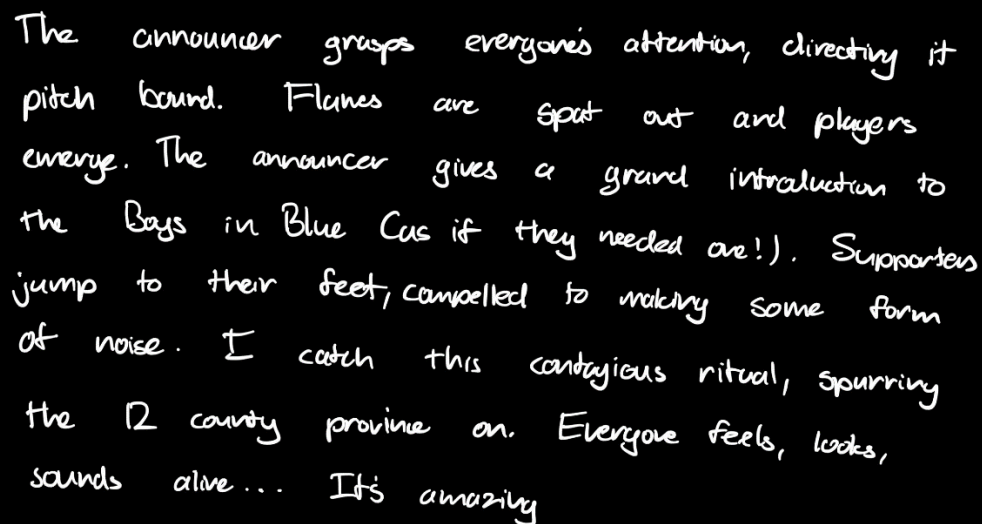 The announcer grasps everyone's attention, directing it
pitch bound. Flames are spat out and players
emerge. The announcer gives a grand introduction to
the Boys in Blue (as if they needed one!). Supporters
jump to their feet, compelled to making some form
of noise. I catch this contagious ritual, spurring
the 12 county province on. Everyone feels, looks,
sounds alive... It's amazing